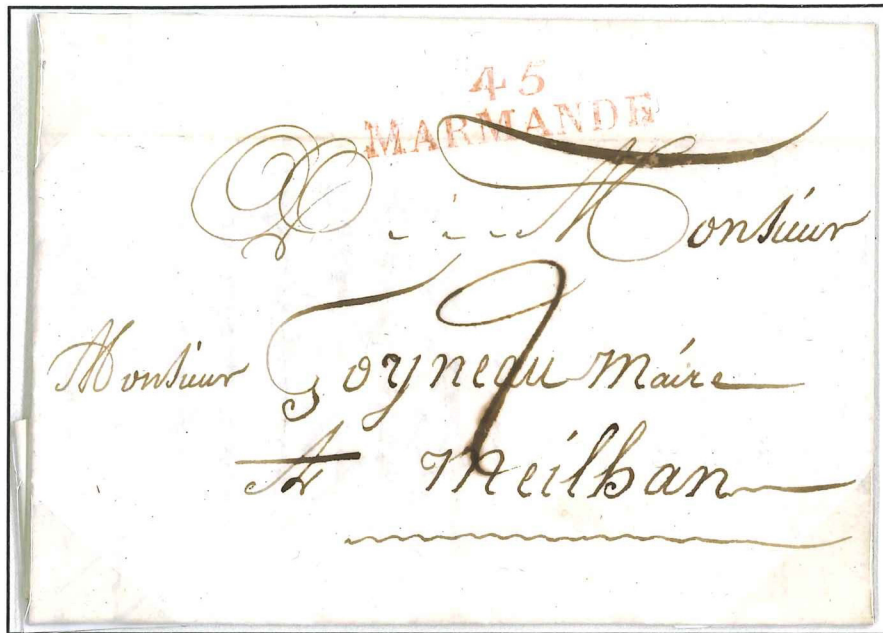 45
MARMANDE
A Monsieur
Monsieur Goyneau Maire
A Meilhan
2